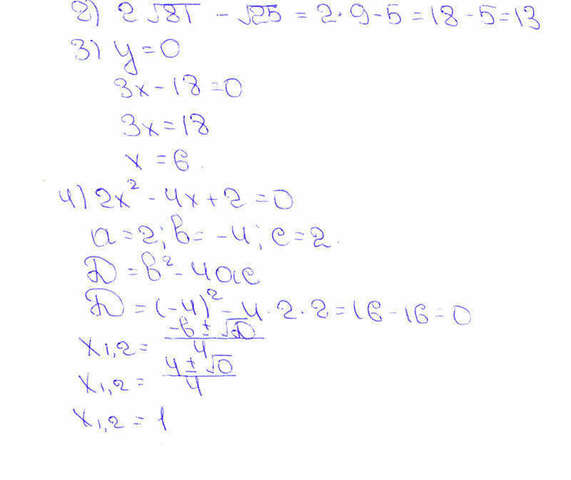 2) 2√81 - √25 = 2·9-5=18-5=13
3) y=0
3x-18=0
3x=18
x=6.
4) 2x²-4x+2=0
a=2; b=-4; c=2.
D=b²-4ac
D=(-4)²-4·2·2=16-16=0
x1,2= (-b±√D)/4
x1,2= (4±√0)/4
x1,2=1